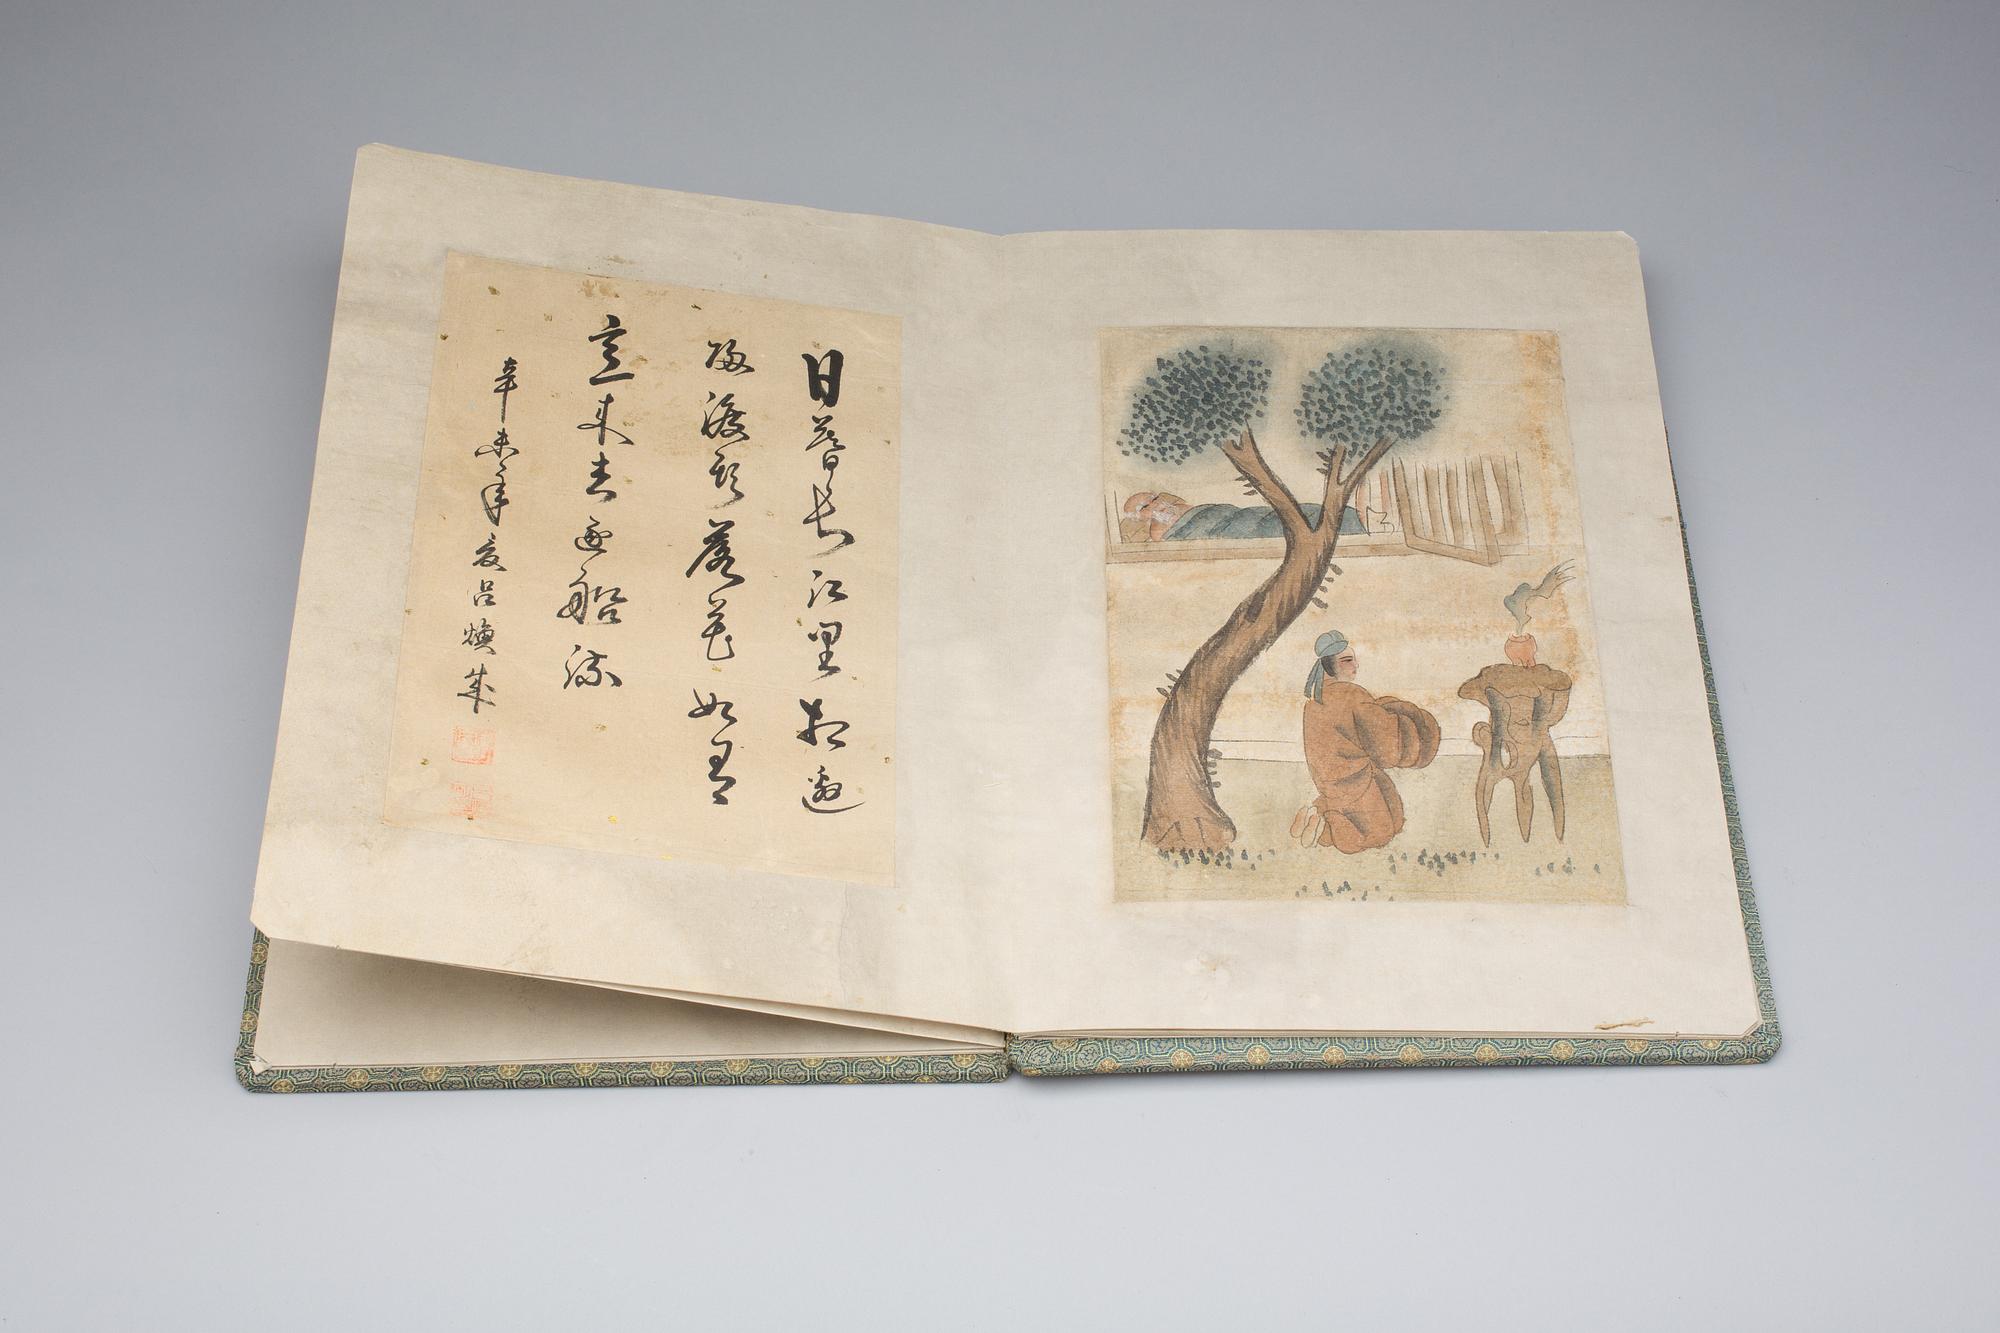 日暮長江里相邀
歸渡頭落花如有
意来去逐船流
辛未年夏呂煥成